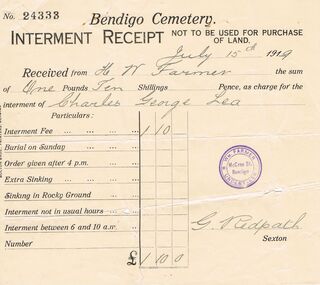 No. 24333
Bendigo Cemetery.
INTERMENT RECEIPT NOT TO BE USED FOR PURCHASE OF LAND.
July 15th 1929
Received from H W Farmer the sum
of One Pounds Ten Shillings Pence, as charge for
interment of Charles George Lea
Particulars:
Interment Fee 1 10
Burial on Sunday
Order given after 4 p.m.
Extra Sinking
Sinking in Rocky Ground
Interment not in usual hours
Interment between 6 and 10 a.m.
Number
£ 1 10 0
WM FARMER
McCrae St.
Bendigo
UNDERTAKER
G. Redpath
Sexton